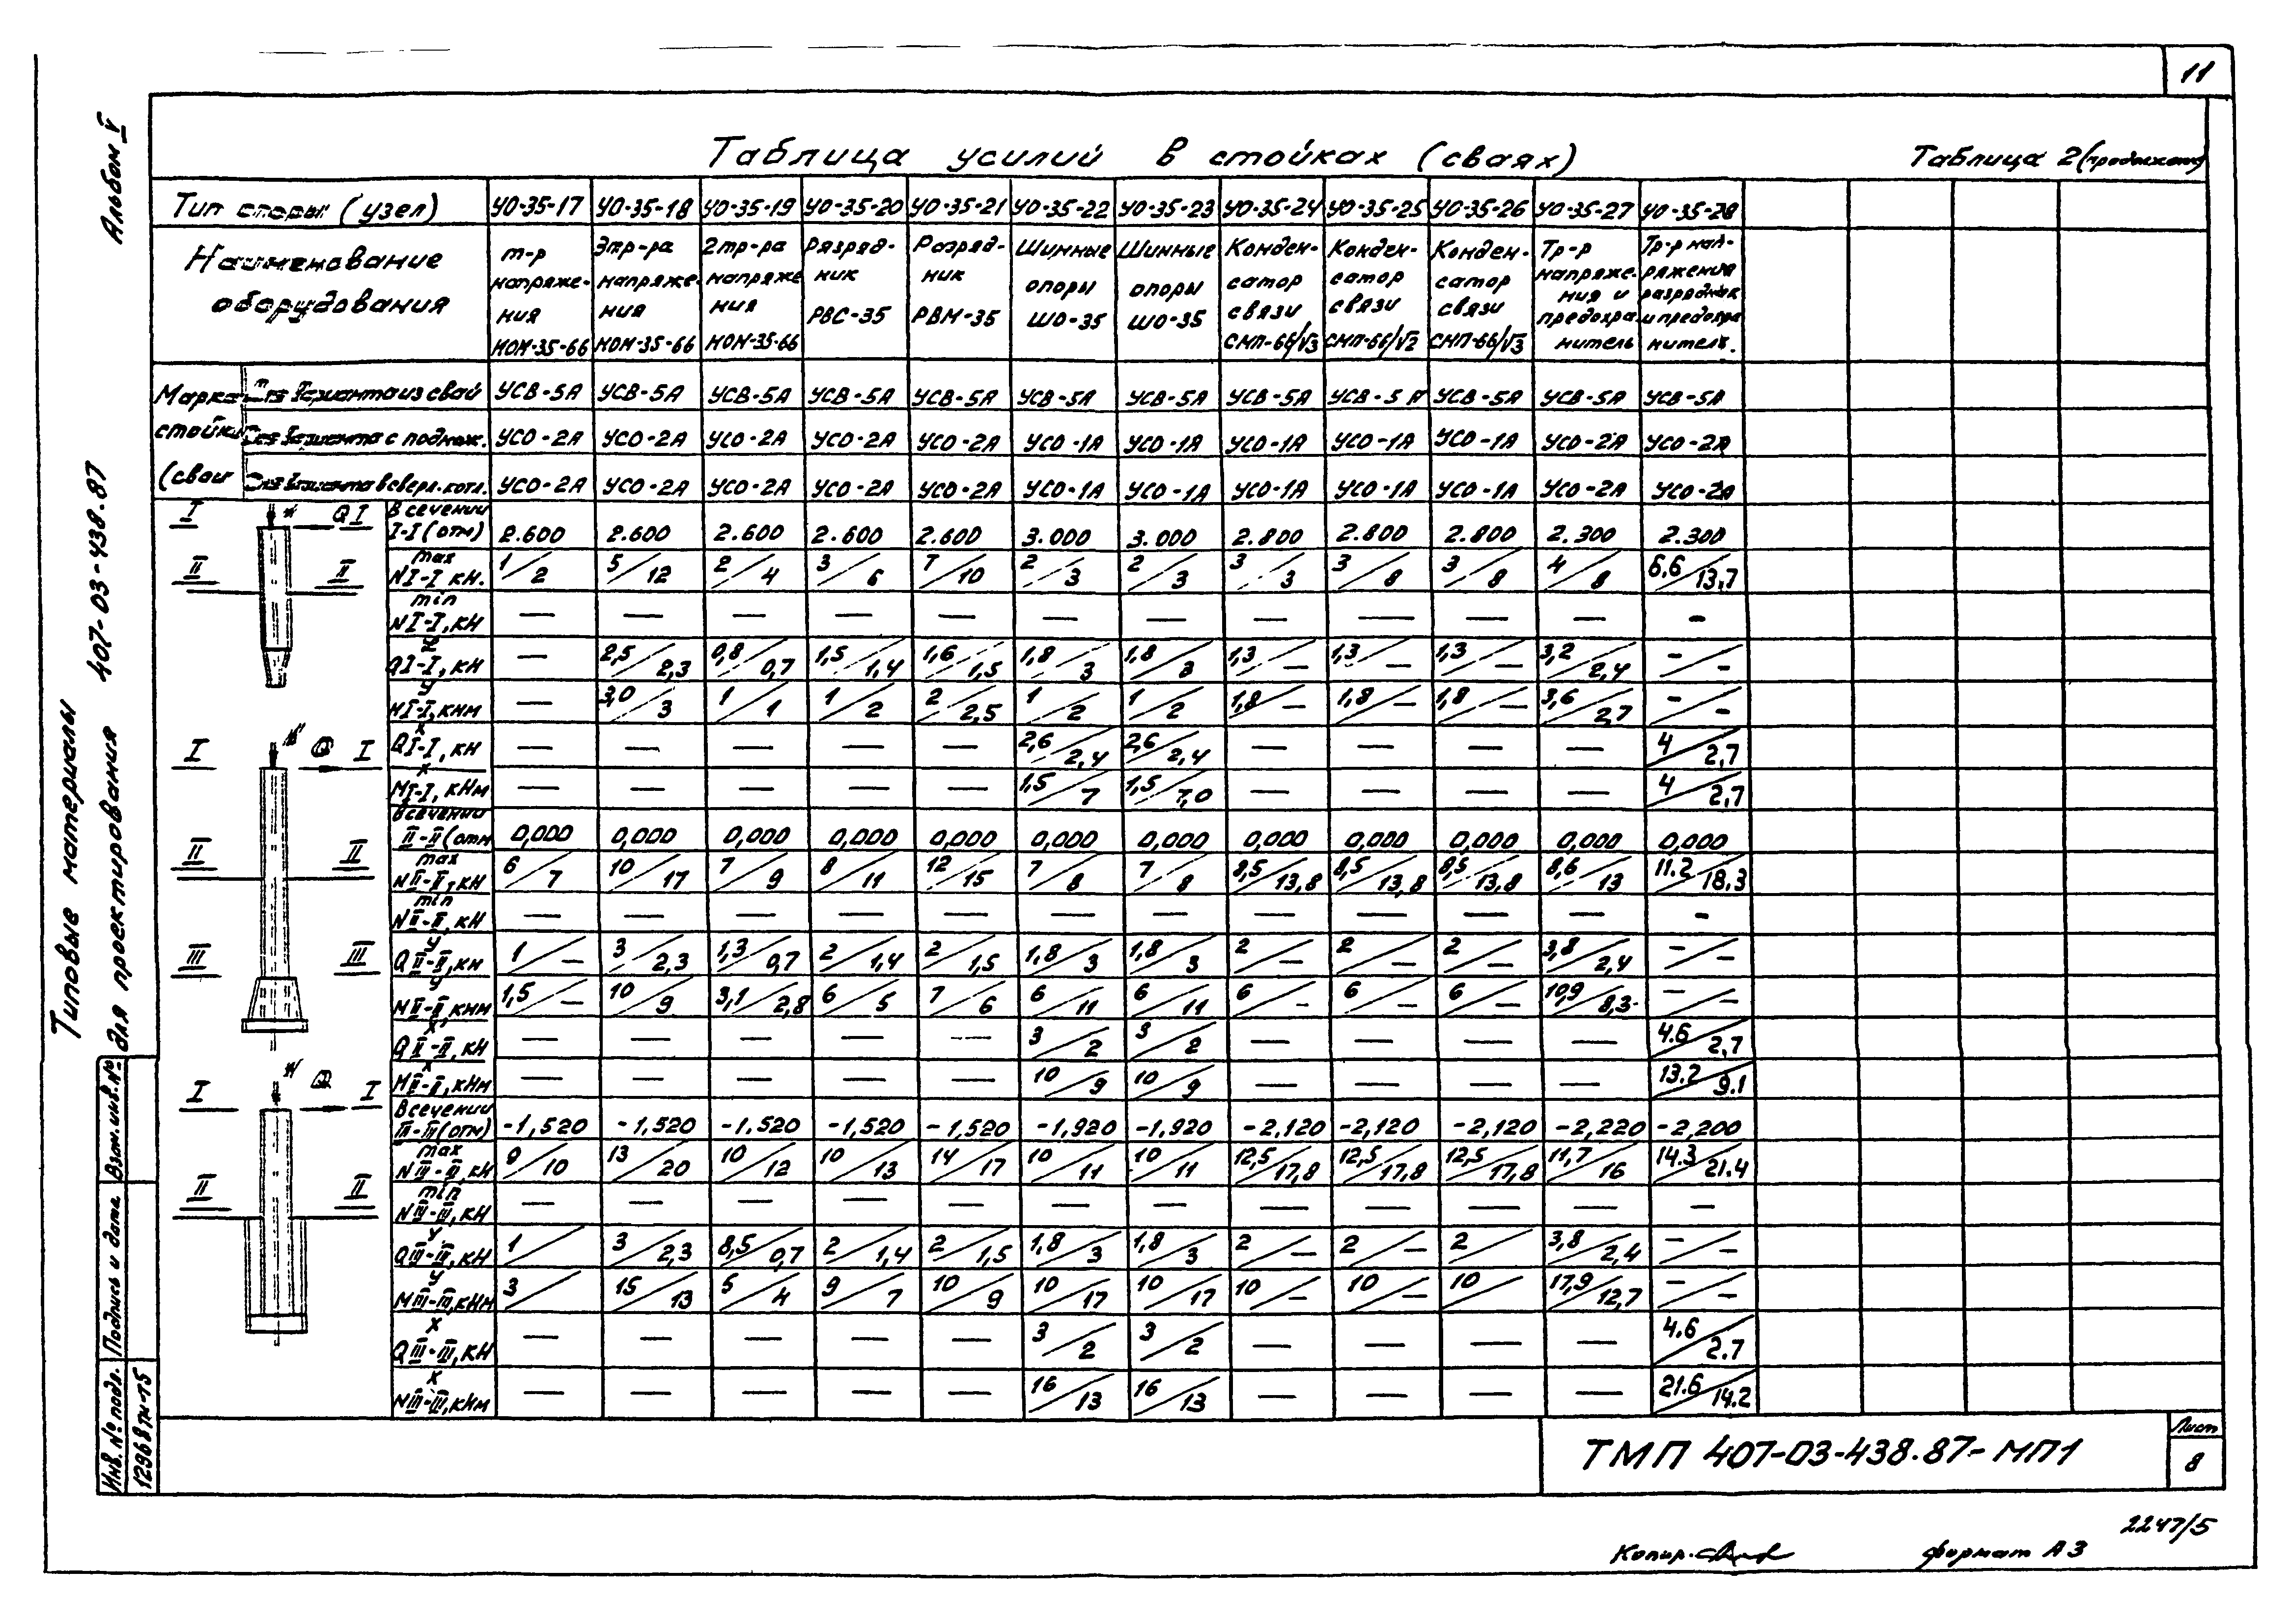 11
Альбом V
Типовые материалы для проектирования 407-03-438.87
Таблица усилий в стойках (сваях)
Таблица 2
Тип опоры (узел) УО-35-17 УО-35-18 УО-35-19 УО-35-20 УО-35-21 УО-35-22 УО-35-23 УО-35-24 УО-35-25 УО-35-26 УО-35-27 УО-35-28
Наименование оборудования
т-р напряже- ния НОМ-35-66
3тр-ра напряже- ния НОМ-35-66
2тр-ра напряже ния НОМ-35-66
Разряд- ник РВС-35
Разряд- ник РВМ-35
Шинные опоры ШО-35
Шинные опоры ШО-35
Конден- сатор связи СМП-66/√3
Конден- сатор связи СМП-66/√2
Конден- сатор связи СМП-66/√3
Тр-р напряже- ния и предохра нитель
Тр-р нап- ряжения разрядник и предохра нитель.
Марка стойки (сваи
варианта из свай УСВ-5А УСВ-5А УСВ-5А УСВ-5А УСВ-5А УСВ-5А УСВ-5А УСВ-5А УСВ-5А УСВ-5А УСВ-5А УСВ-5А
варианта с поднож. УСО-2А УСО-2А УСО-2А УСО-2А УСО-2А УСО-1А УСО-1А УСО-1А УСО-1А УСО-1А УСО-2А УСО-2А
варианта в сверл. котл. УСО-2А УСО-2А УСО-2А УСО-2А УСО-2А УСО-1А УСО-1А УСО-1А УСО-1А УСО-1А УСО-2А УСО-2А
В сечении I-I (отм) 2.600 2.600 2.600 2.600 2.600 3.000 3.000 2.800 2.800 2.800 2.300 2.300
max NI-I кН. 1/2 5/12 2/4 3/6 7/10 2/3 2/3 3/3 3/8 3/8 4/8 6.6/13,7
min NI-I, кН — — — — — — — — — — — -
QI-I, кН — 2,5/2,3 0,8/0,7 1,5/1,4 1,6/1,5 1,8/3 1,8/3 1,3/— 1,3/— 1,3/— 3,2/2,4 -/-
У МI-I, кНм — 3,0/3 1/1 1/2 2/2,5 1/2 1/2 1,8/— 1,8/— 1,8/— 3,6/2,7 -/-
х QI-I, кН — — — — — 2,6/2,4 2,6/2,4 — — — — 4/2,7
х МI-I, кНм — — — — — 1,5/7 1,5/7,0 — — — — 4/2,7
В сечении II-II (отм 0,000 0,000 0,000 0,000 0,000 0,000 0,000 0,000 0,000 0,000 0,000 0,000
max NII-II, кН 6/7 10/17 7/9 8/11 12/15 7/8 7/8 8,5/13,8 8,5/13,8 8,5/13,8 8,6/13 11.2/18.3
min NII-II, кН — — — — — — — — — — — -
У QII-II, кН 1/— 3/2,3 1,3/0,7 2/1,4 2/1,5 1,8/3 1,8/3 2/— 2/— 2/— 3,8/2,4 -/-
У МII-II, кНм 1,5/— 10/9 3,1/2,8 6/5 7/6 6/11 6/11 6/— 6/— 6/— 10,9/8,3 -/-
х QII-II, кН — — — — — 3/2 3/2 — — — — 4.6/2,7
х МII-II, кНм — — — — — 10/9 10/9 — — — — 13.2/9.1
В сечении III-III (отм) -1,520 -1,520 -1,520 -1,520 -1,520 -1,920 -1,920 -2,120 -2,120 -2,120 -2,220 -2,200
max NIII-III, кН 9/10 13/20 10/12 10/13 14/17 10/11 10/11 12,5/17,8 12,5/17,8 12,5/17,8 11,7/16 14.3/21.4
min NIII-III, кН — — — — — — — — — — — —
У QIII-III, кН 1/ 3/2,3 8,5/0,7 2/1,4 2/1,5 1,8/3 1,8/3 2/— 2/— 2/ 3,8/2,4 -/-
У МIII-III, кНм 3/ 15/13 5/4 9/7 10/9 10/17 10/17 10/— 10/— 10/ 17,9/12,7 -/-
х QIII-III, кН — — — — — 3/2 3/2 — — — — 4.6/2.7
х NIII-III, кНм — — — — — 16/13 16/13 — — — — 21.6/14.2
I QI
II II
I Q I
II II
III III
N Q
I I
II II
Инв. № подл. Подпись и дата Взам. инв. №
12968тм-т5
ТМП 407-03-438.87-МП1
Лист
8
2247/5
Копир.
формат А3